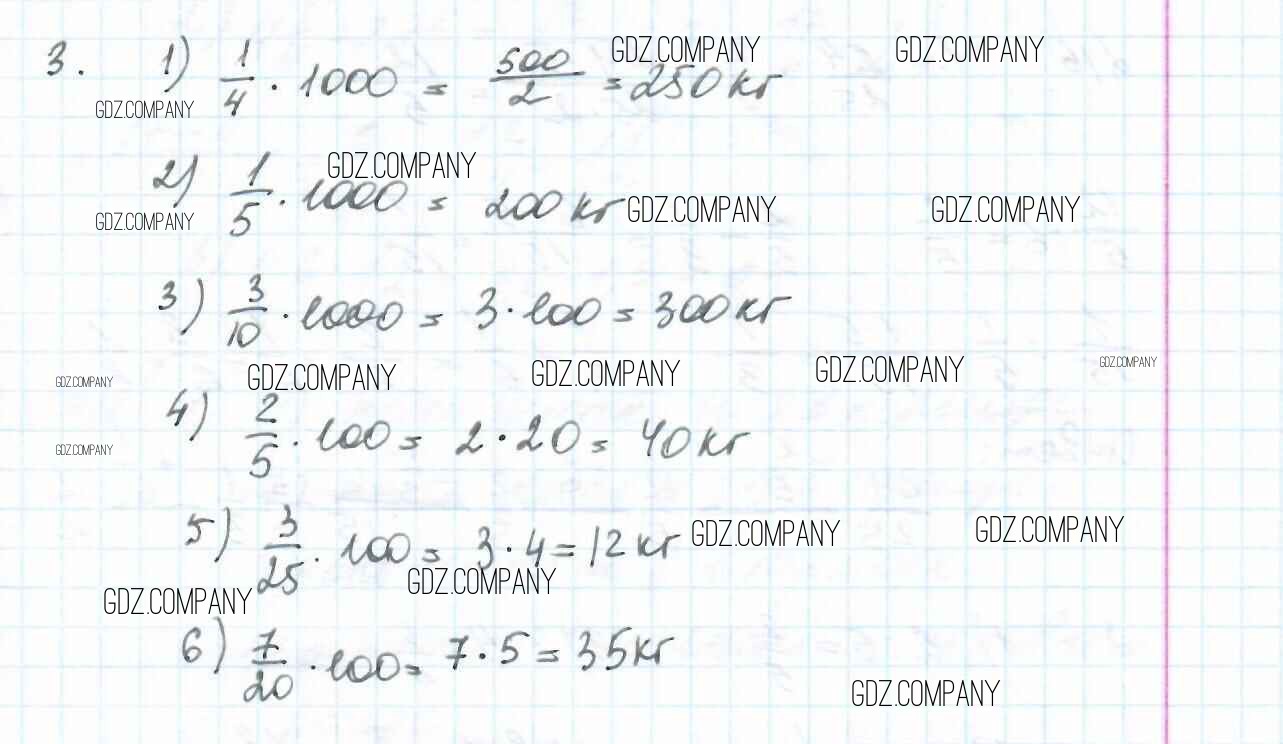 3. 1) 1/4 · 1000 = 500/2 = 250 кг
GDZ.COMPANY GDZ.COMPANY
GDZ.COMPANY
GDZ.COMPANY
2) 1/5 · 1000 = 200 кг
GDZ.COMPANY GDZ.COMPANY GDZ.COMPANY
3) 3/10 · 1000 = 3 · 100 = 300 кг
GDZ.COMPANY GDZ.COMPANY GDZ.COMPANY GDZ.COMPANY GDZ.COMPANY
4) 2/5 · 100 = 2 · 20 = 40 кг
GDZ.COMPANY
5) 3/25 · 100 = 3 · 4 = 12 кг
GDZ.COMPANY GDZ.COMPANY
GDZ.COMPANY GDZ.COMPANY
6) 7/20 · 100 = 7 · 5 = 35 кг
GDZ.COMPANY